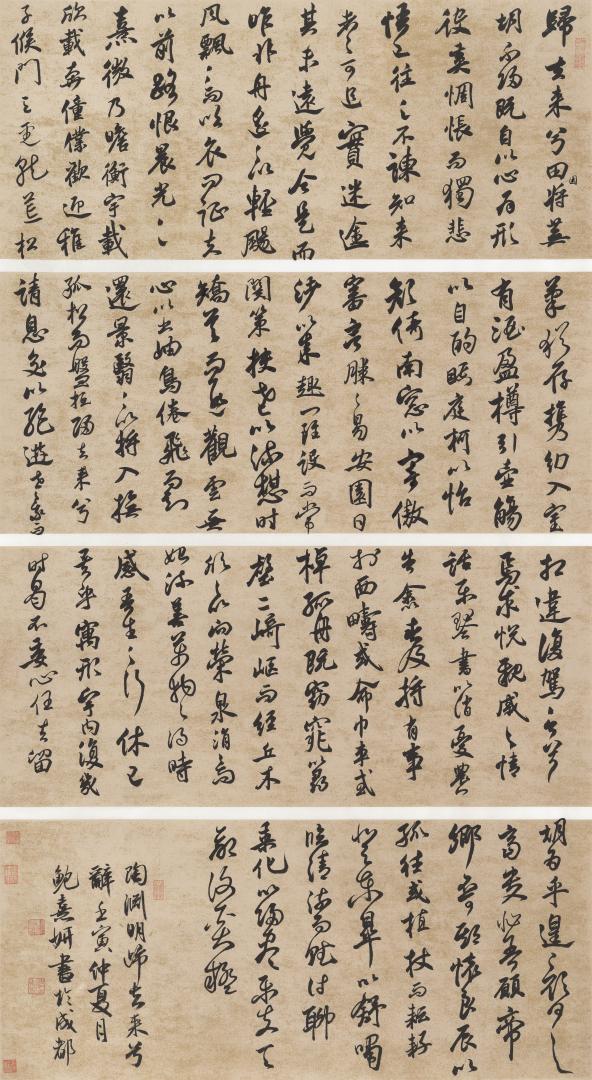 歸去來兮田園將蕪
胡不歸既自以心為形
役奚惆悵而獨悲
悟已往之不諫知來
者之可追實迷途
其未遠覺今是而
昨非舟遙遙以輕颺
風飄飄而吹衣問征夫
以前路恨晨光之
熹微乃瞻衡宇載
欣載奔僮僕歡迎稚
子候門三徑就荒松
菊猶存攜幼入室
有酒盈樽引壺觴
以自酌眄庭柯以怡
顏倚南窗以寄傲
審容膝之易安園日
涉以成趣門雖設而常
關策扶老以流憩時
矯首而遐觀雲無
心以出岫鳥倦飛而知
還景翳翳以將入撫
孤松而盤桓歸去來兮
請息交以絕遊世與我而
相違復駕言兮
焉求悅親戚之情
話樂琴書以消憂農人
告余春及將有事
於西疇或命巾車或
棹孤舟既窈窕以尋
壑亦崎嶇而經丘木
欣欣以向榮泉涓涓而
始流善萬物之得時
感吾生之行休已
矣乎寓形宇內復幾
時曷不委心任去留
胡為乎遑遑欲何之
富貴非吾願帝
鄉不可期懷良辰以
孤往或植杖而耘耔
登東皋以舒嘯
臨清流而賦詩聊
乘化以歸盡樂夫天
命復奚疑
陶淵明歸去來兮
辭壬寅仲夏月
鮑熹妍書於成都